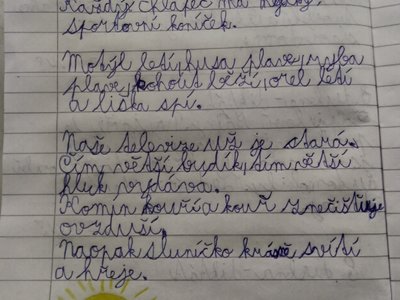 Každý chlapec má nějaký
sportovní koníček.
Motýl letí, husa plave, ryba
plave, kohout běží, orel letí
a liška spí.
Naše televize už je stará.
Čím větší budík, tím větší
hluk vydává.
Komín kouří a kouř znečišťuje
ovzduší.
Naopak sluníčko krásně svítí
a hřeje.